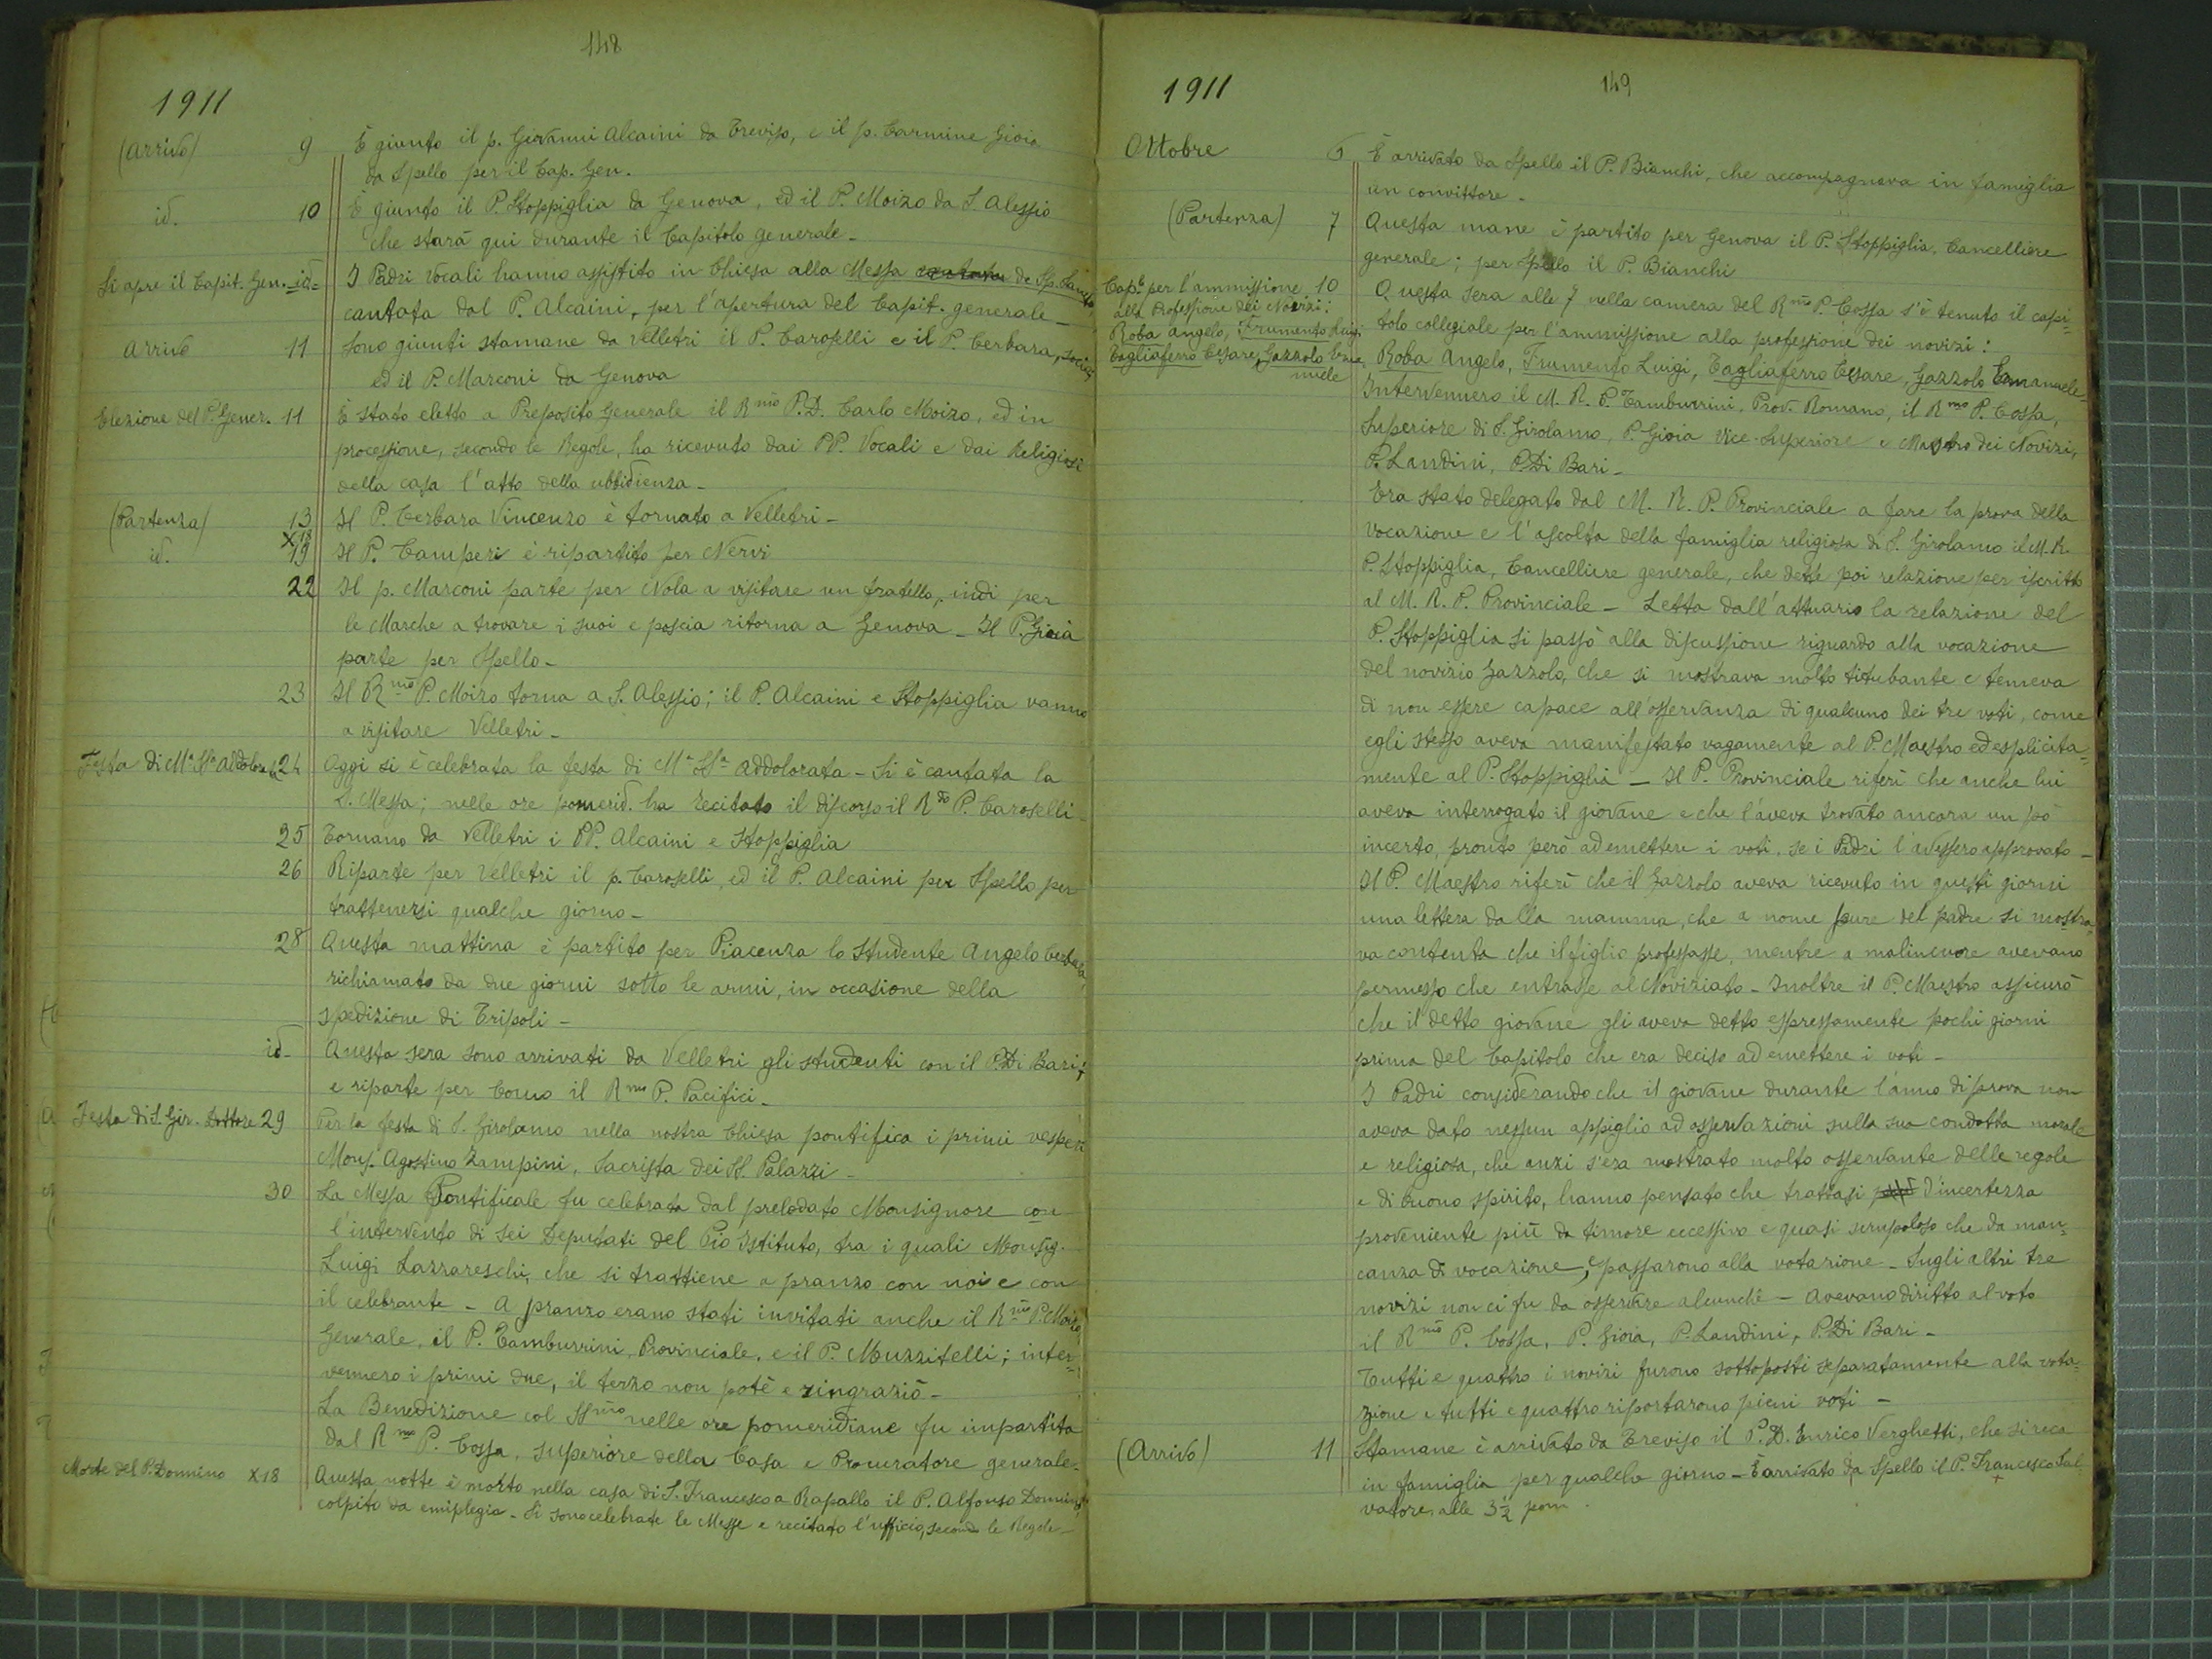 148
1911
(Arrivo) 9 È giunto il p. Giovanni Alcaini da Treviso, e il p. Carmine Gioia
da Spello per il Cap. Gen.
id. 10 È giunto il P. Stoppiglia da Genova, ed il P. Moizo da S. Alessio
che starà qui durante il Capitolo generale_
Si apre il Capit. Gen. =id= I Padri Vocali hanno assistito in Chiesa alla Messa de Sp. Sancto
cantata dal P. Alcaini, per l'apertura del Capit. generale_
Arrivo 11 Sono giunti stamane da Velletri il P. Caroselli e il P. Cerbara, socio,
ed il P. Marconi da Genova
Elezione del P. Gener. 11 È stato eletto a Preposito Generale il Rmo P. D. Carlo Moizo, ed in
processione, secondo le Regole, ha ricevuto dai PP. Vocali e dai Religiosi
della casa l'atto della ubbidienza_
(Partenza) 13 Il P. Cerbara Vincenzo è tornato a Velletri_
X18
id. 19 Il P. Camperi è ripartito per Nervi
22 Il p. Marconi parte per Nola a visitare un fratello, indi per
le Marche a trovare i suoi e poscia ritorna a Genova_ Il P. Gioia
parte per Spello_
23 Il Rmo P. Moizo torna a S. Alessio; il P. Alcaini e Stoppiglia vanno
a visitare Velletri_
Festa di Ma SSa Addolorata 24 Oggi si è celebrata la festa di Ma SSa Addolorata_ Si è cantata la
S. Messa; nelle ore pomerid. ha recitato il discorso il Rdo P. Caroselli_
25 Tornano da Velletri i PP. Alcaini e Stoppiglia
26 Riparte per Velletri il p. Caroselli, ed il P. Alcaini per Spello per
trattenersi qualche giorno_
28 Questa mattina è partito per Piacenza lo studente Angelo Cerbara,
richiamato da due giorni sotto le armi, in occasione della
spedizione di Tripoli_
id_ Questa sera sono arrivati da Velletri gli studenti con il P. Di Bari;
e riparte per Como il Rmo P. Pacifici_
Festa di S. Gir. Dottore 29 Per la festa di S. Girolamo nella nostra Chiesa pontifica i primi vesperi
Mons. Agostino Zampini, Sacrista dei SS. Palazzi_
30 La Messa Pontificale fu celebrata dal prelodato Monsignore con
l'intervento di sei Deputati del Pio Istituto, tra i quali Monsig.
Luigi Lazzareschi, che si trattiene a pranzo con noi e con
il celebrante_ A pranzo erano stati invitati anche il Rmo P. Moizo
Generale, il P. Tamburrini, Provinciale, e il P. Muzzitelli; inter=
vennero i primi due, il terzo non potè e ringraziò_
La Benedizione col SSmo nelle ore pomeridiane fu impartita
dal Rmo P. Cossa, superiore della Casa e Procuratore generale_
Morte del P. Donnino X18 Questa notte è morto nella casa di S. Francesco a Rapallo il P. Alfonso Donnino,
colpito da emiplegia_ Si sono celebrate le Messe e recitato l'ufficio, secondo le Regole_
149
1911
Ottobre 6 È arrivato da Spello il P. Bianchi, che accompagnava in famiglia
un convittore_
(Partenza) 7 Questa mane è partito per Genova il P. Stoppiglia, Cancelliere
generale; per Spello il P. Bianchi
Cap.lo per l'ammissione 10 Questa sera alle 7 nella camera del Rmo P. Cossa s'è tenuto il capi=
alla Professione dei Novizi: tolo collegiale per l'ammissione alla professione dei novizi:
Roba Angelo, Frumento Luigi
Tagliaferro Cesare, Gazzolo Ema
nuele
Roba Angelo, Frumento Luigi, Tagliaferro Cesare, Gazzolo Emanuele_
Intervennero il M. R. P. Tamburrini, Prov. Romano, il Rmo P. Cossa,
Superiore di S. Girolamo, P. Gioia Vice-Superiore e Maestro dei Novizi,
P. Landini, P. Di Bari_
Era stato delegato dal M. R. P. Provinciale a fare la prova della
vocazione e l'ascolta della famiglia religiosa di S. Girolamo il M. R.
P. Stoppiglia, Cancelliere generale, che dette poi relazione per iscritto
al M. R. P. Provinciale_ Letta dall'attuario la relazione del
P. Stoppiglia si passò alla discussione riguardo alla vocazione
del novizio Gazzolo, che si mostrava molto titubante e temeva
di non essere capace all'osservanza di qualcuno dei tre voti, come
egli stesso aveva manifestato vagamente al P. Maestro ed esplicita=
mente al P. Stoppiglia_ Il P. Provinciale riferì che anche lui
aveva interrogato il giovane e che l'aveva trovato ancora un pò
incerto, pronto però ad emettere i voti, se i Padri l'avessero approvato_
Il P. Maestro riferì che il Gazzolo aveva ricevuto in questi giorni
una lettera dalla mamma, che a nome pure del padre si mostra=
va contenta che il figlio professasse, mentre a malincuore avevano
permesso che entrasse al Noviziato_ Inoltre il P. Maestro assicurò
che il detto giovane gli aveva detto espressamente pochi giorni
prima del Capitolo che era deciso ad emettere i voti_
I Padri considerando che il giovane durante l'anno di prova non
aveva dato nessun appiglio ad osservazioni sulla sua condotta morale
e religiosa, che anzi s'era mostrato molto osservante delle regole
e di buono spirito, hanno pensato che trattasi d'incertezza
proveniente più da timore eccessivo e quasi scrupoloso che da man=
canza di vocazione, e passarono alla votazione_ Sugli altri tre
novizi non ci fu da osservare alcunchè_ Avevano diritto al voto
il Rmo P. Cossa, P. Gioia, P. Landini, P. Di Bari_
Tutti e quattro i novizi furono sottoposti separatamente alla vota=
zione e tutti e quattro riportarono pieni voti_
(Arrivo) 11 Stamane è arrivato da Treviso il P. D. Enrico Verghetti, che si reca
in famiglia per qualche giorno_ È arrivato da Spello il P. Francesco Sal=
vatore, alle 3 1/2 pom.